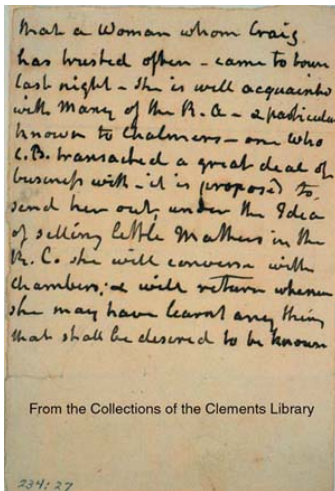 that a Woman whom Craig
has trusted often – came to town
last night – she is well acquainted
with Many of the R. A – & particular
known to Chalmers – one who
C.B. transacted a great deal of
business with – it is proposed to
send her out, under the Idea
of selling little Matters in the
R. C. she will converse with
Chambers, & will return whenever
she may have learnt any thing
that shall be desired to be known
From the Collections of the Clements Library
234:27